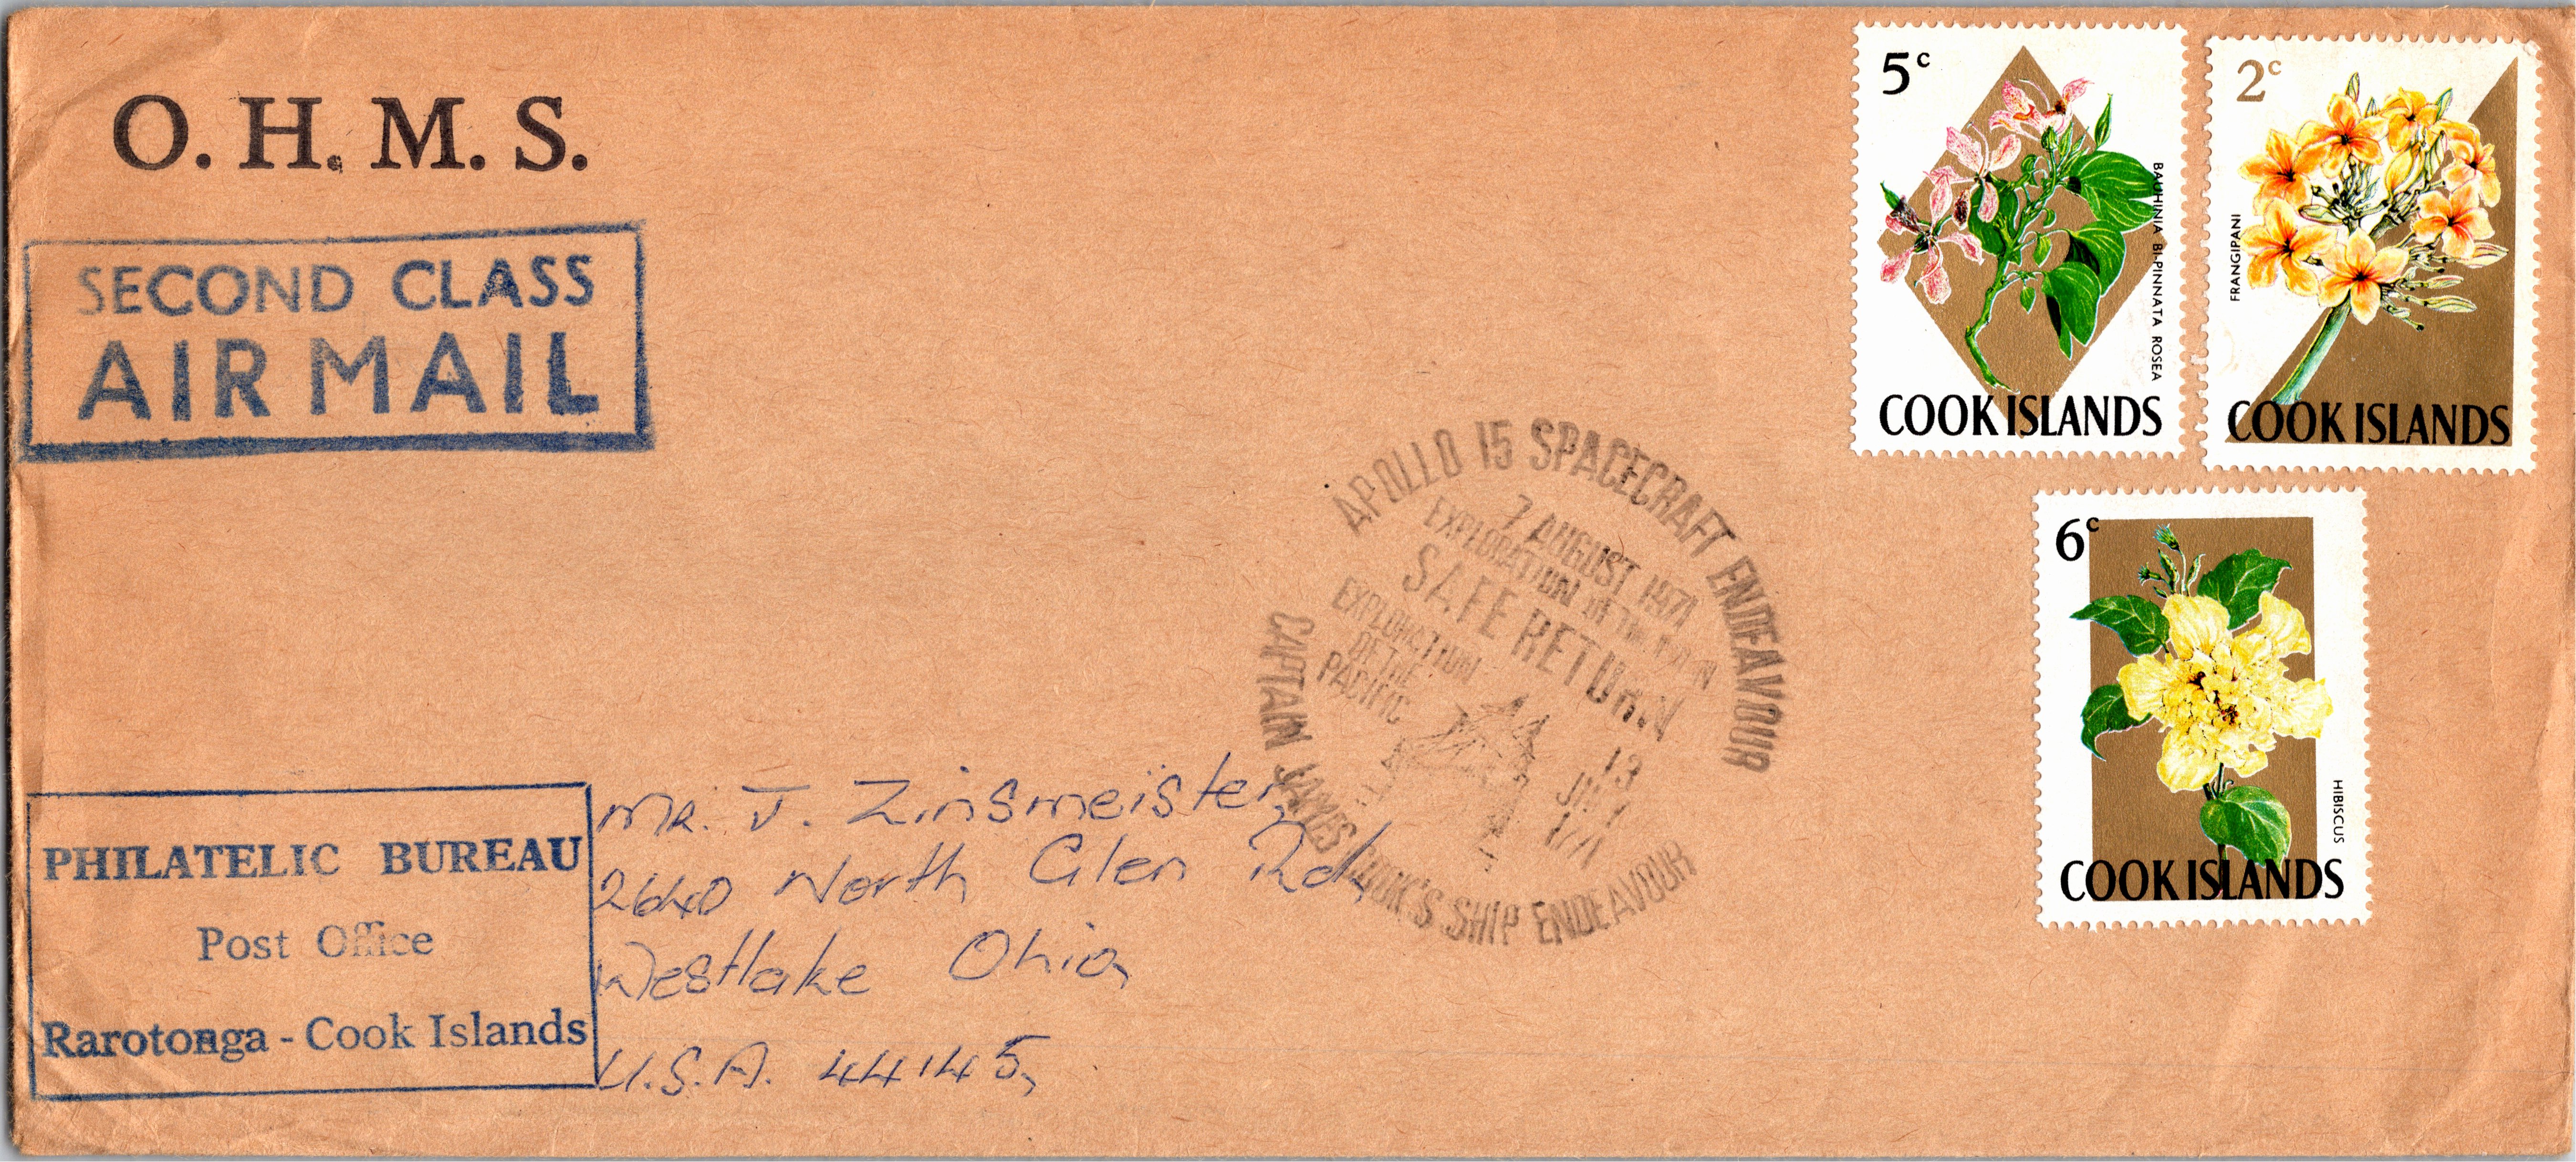 O. H. M. S.
SECOND CLASS
AIR MAIL
5c
BAUHINIA BI-PINNATA ROSEA
COOK ISLANDS
2c
FRANGIPANI
COOK ISLANDS
6c
HIBISCUS
COOK ISLANDS
APOLLO 15 SPACECRAFT ENDEAVOUR
7 AUGUST 1971
EXPLORATION OF THE MOON
SAFE RETURN
EXPLORATION
OF THE
PACIFIC
13
CAPTAIN JAMES COOK'S SHIP ENDEAVOUR
Mr. J. Zinsmeister,
2640 North Glen Rd,
Westlake Ohio,
U.S.A. 44145,
PHILATELIC BUREAU
Post Office
Rarotonga - Cook Islands